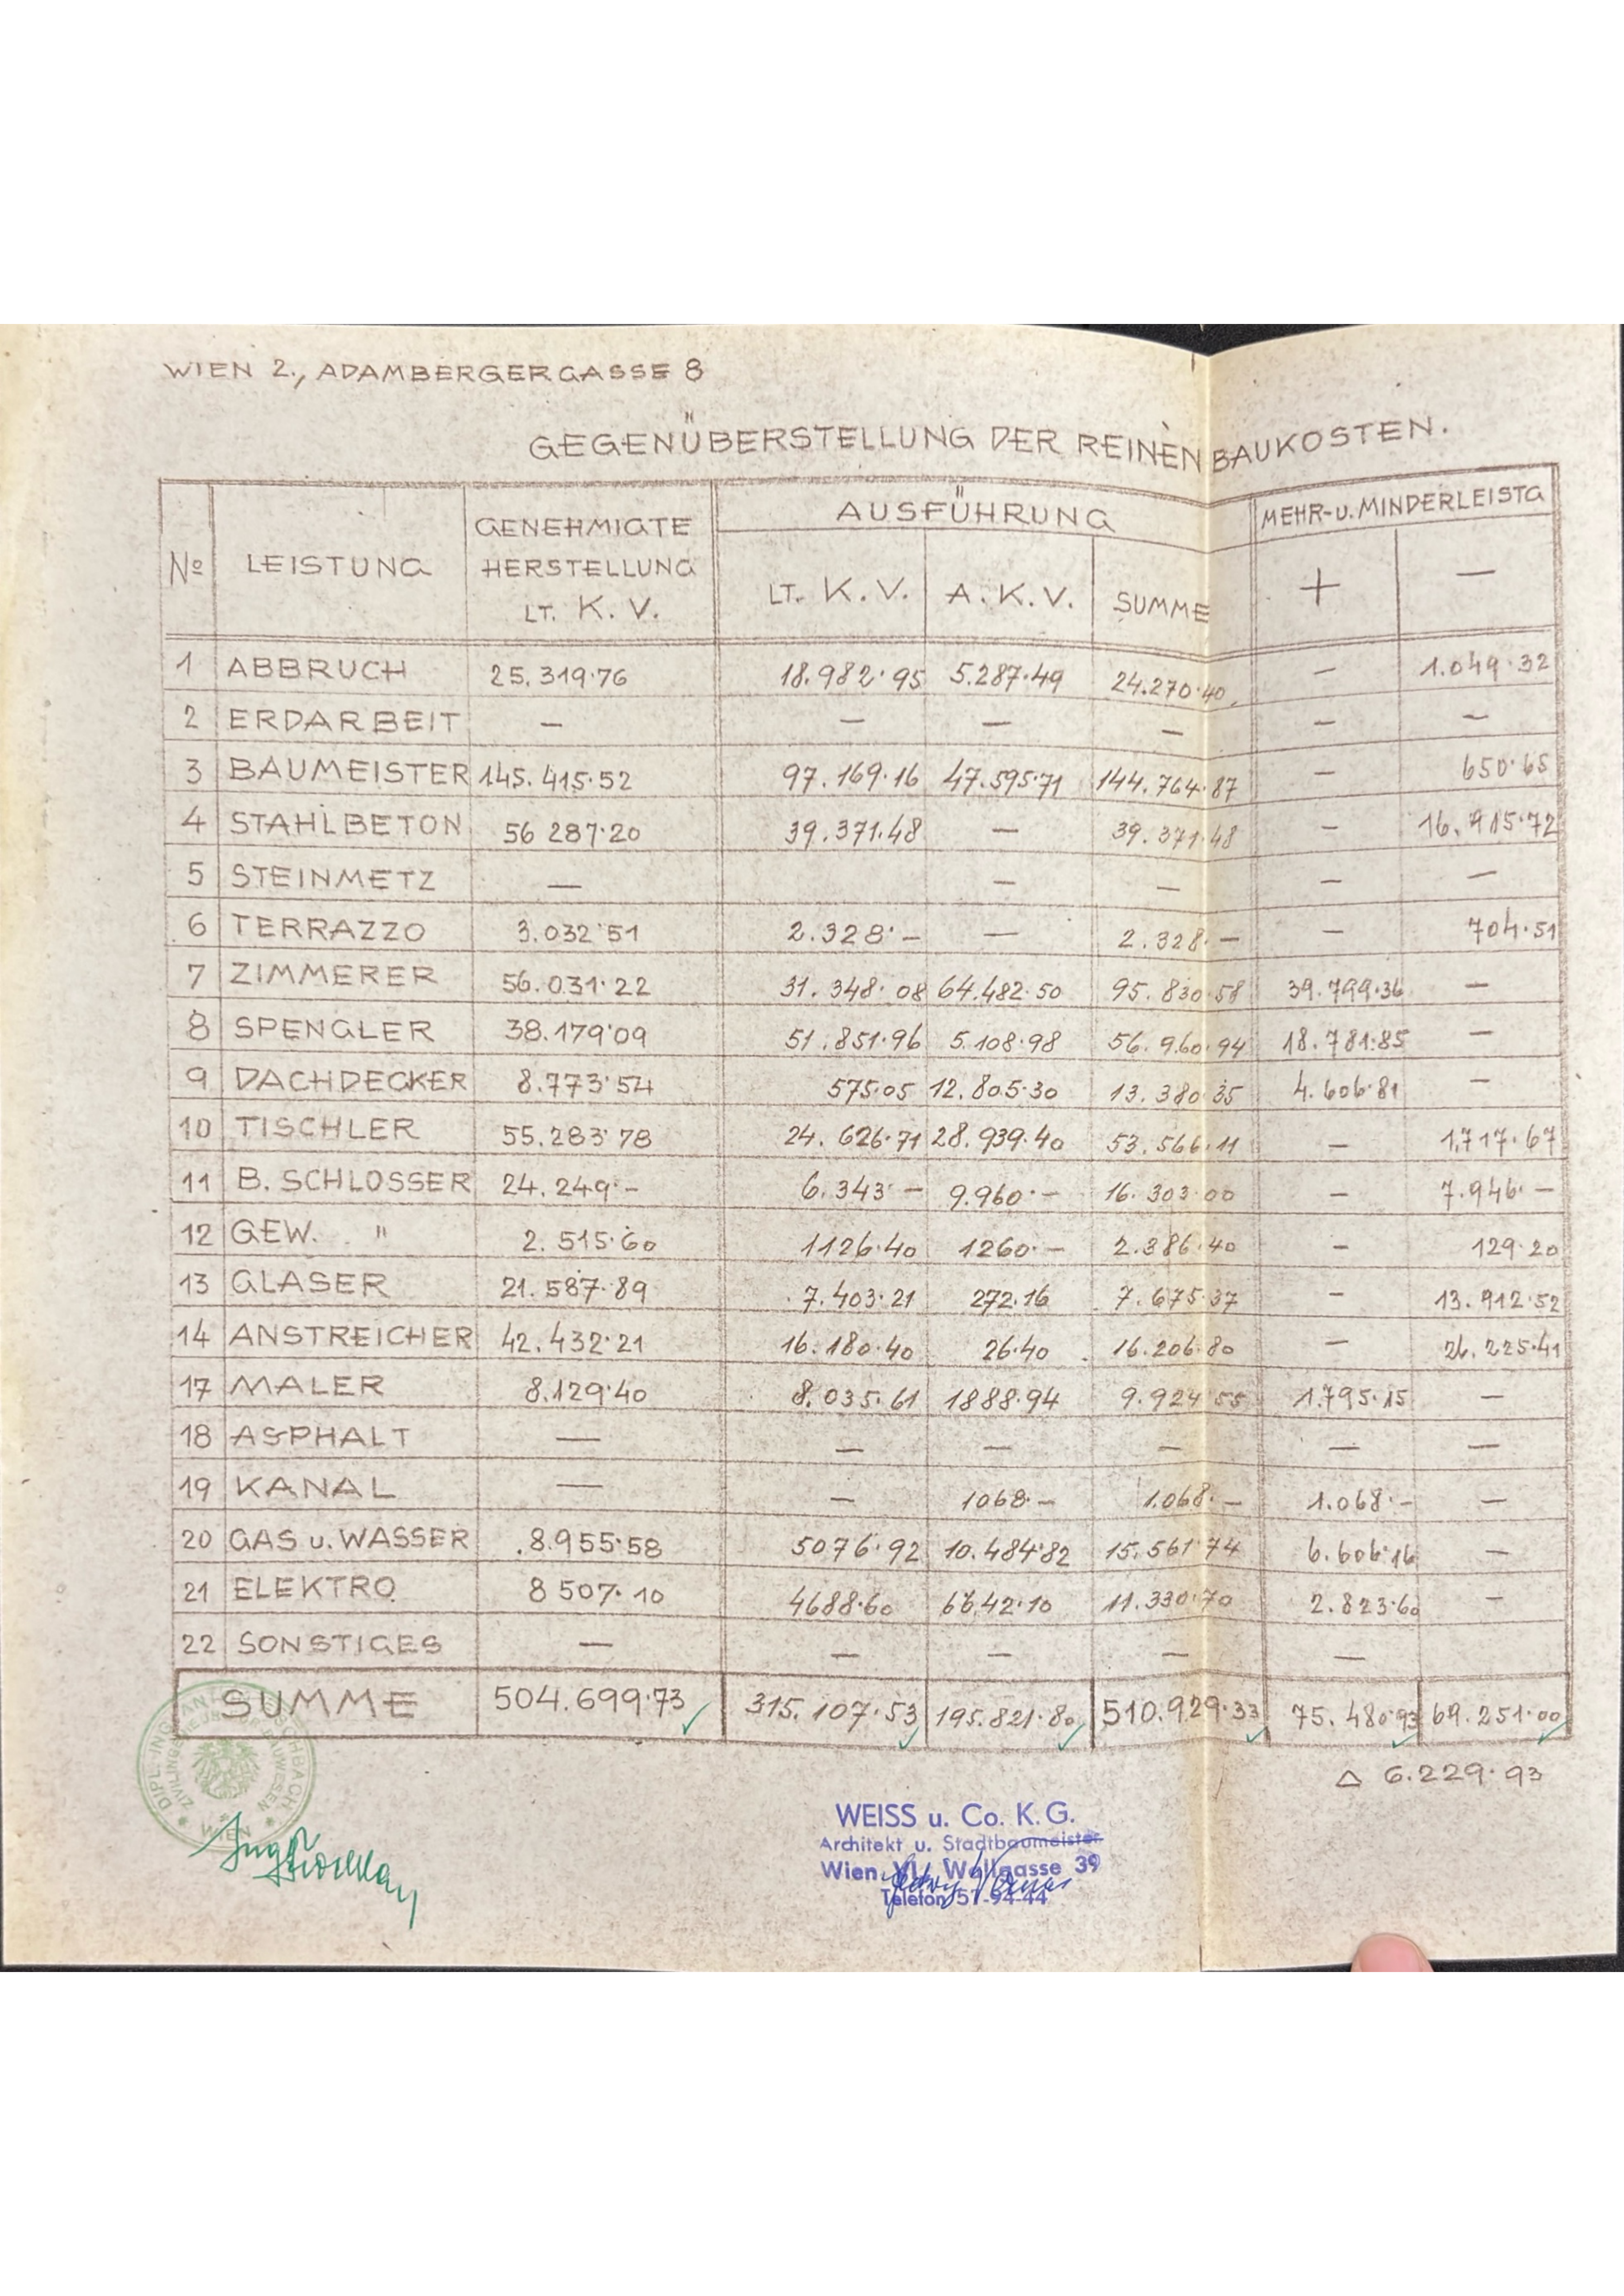 WIEN 2., ADAMBERGERGASSE 8
GEGENÜBERSTELLUNG DER REINEN BAUKOSTEN.
No LEISTUNG GENEHMIGTE HERSTELLUNG LT. K. V. AUSFÜHRUNG MEHR-u. MINDERLEISTG
LT. K. V. A. K. V. SUMME + —
1 ABBRUCH 25.319·76 18.982·95 5.287·49 24.270·40 — 1.049·32
2 ERDARBEIT — — — — — —
3 BAUMEISTER 145.415·52 97.169·16 47.595·71 144.764·87 — 650·65
4 STAHLBETON 56 287·20 39.371.48 — 39.371·48 — 16.915·72
5 STEINMETZ — — — — —
6 TERRAZZO 3.032·51 2.328·— — 2.328·— — 704·51
7 ZIMMERER 56.031·22 31.348·08 64.482·50 95.830·58 39.799·36 —
8 SPENGLER 38.179·09 51.851·96 5.108·98 56.960·94 18.781·85 —
9 DACHDECKER 8.773·54 575·05 12.805·30 13.380·35 4.606·81 —
10 TISCHLER 55.283·78 24.626·71 28.939·40 53.566·11 — 1.717·67
11 B. SCHLOSSER 24.249·— 6.343·— 9.960·— 16.303·00 — 7.946·—
12 GEW. " 2.515·60 1126·40 1260·— 2.386·40 — 129·20
13 GLASER 21.587·89 7.403·21 272·16 7.675·37 — 13.912·52
14 ANSTREICHER 42.432·21 16.180·40 26·40 16.206·80 — 26.225·41
17 MALER 8.129·40 8.035·61 1888·94 9.924·55 1.795·15 —
18 ASPHALT — — — — — —
19 KANAL — — 1068·— 1.068·— 1.068·— —
20 GAS u. WASSER 8.955·58 5076·92 10.484·82 15.561·74 6.606·16 —
21 ELEKTRO 8 507·10 4688·60 6642·10 11.330·70 2.823·60 —
22 SONSTIGES — — — — —
SUMME 504.699·73 315.107·53 195.821·80 510.929·33 75.480·93 69.251·00
△ 6.229·93
WIEN
WEISS u. Co. K. G.
Architekt u. Stadtbaumeister
Wien, VI., Wallgasse 39
Telefon 57-94-44